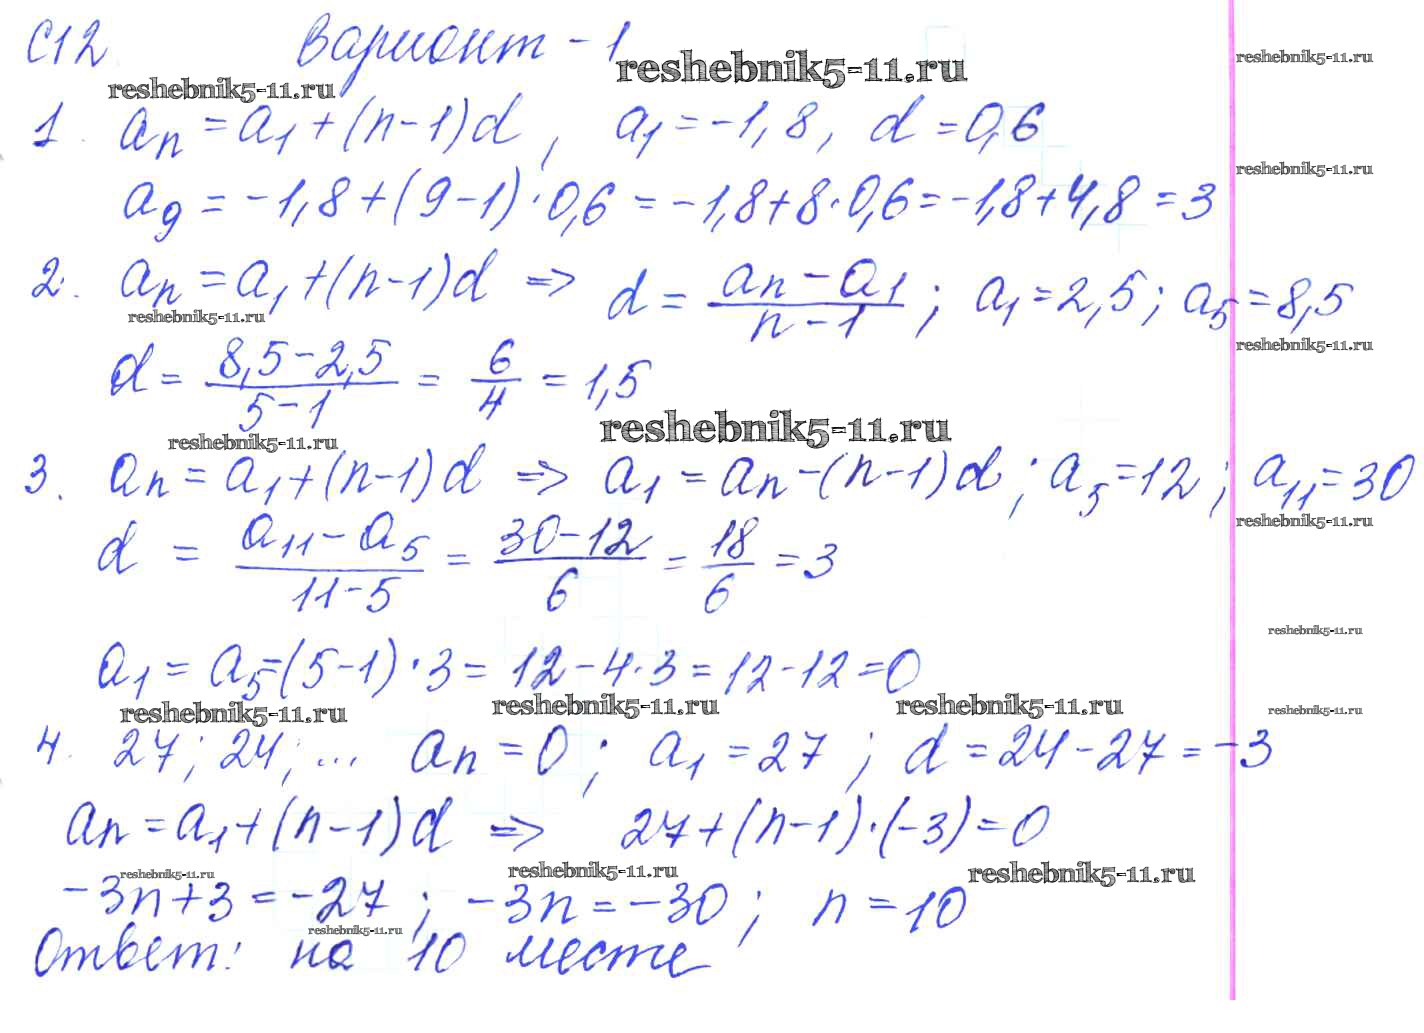 С12 Вариант - 1
reshebnik5-11.ru
reshebnik5-11.ru
reshebnik5-11.ru
1. aₙ = a₁ + (n-1)d, a₁ = -1,8, d = 0,6
reshebnik5-11.ru
a₉ = -1,8 + (9-1)·0,6 = -1,8+8·0,6 = -1,8+4,8 = 3
2. aₙ = a₁ + (n-1)d => d = (aₙ - a₁)/(n-1); a₁ = 2,5; a₅ = 8,5
reshebnik5-11.ru
reshebnik5-11.ru
d = (8,5-2,5)/(5-1) = 6/4 = 1,5
reshebnik5-11.ru
reshebnik5-11.ru
3. aₙ = a₁ + (n-1)d => a₁ = aₙ - (n-1)d; a₅ = 12; a₁₁ = 30
reshebnik5-11.ru
d = (a₁₁ - a₅)/(11-5) = (30-12)/6 = 18/6 = 3
reshebnik5-11.ru
a₁ = a₅ = (5-1)·3 = 12-4·3 = 12-12 = 0
reshebnik5-11.ru
reshebnik5-11.ru
reshebnik5-11.ru
reshebnik5-11.ru
4. 27; 24; ... aₙ = 0; a₁ = 27; d = 24-27 = -3
aₙ = a₁ + (n-1)d => 27+(n-1)·(-3) = 0
reshebnik5-11.ru
reshebnik5-11.ru
reshebnik5-11.ru
-3n+3 = -27; -3n = -30; n = 10
reshebnik5-11.ru
Ответ: на 10 месте